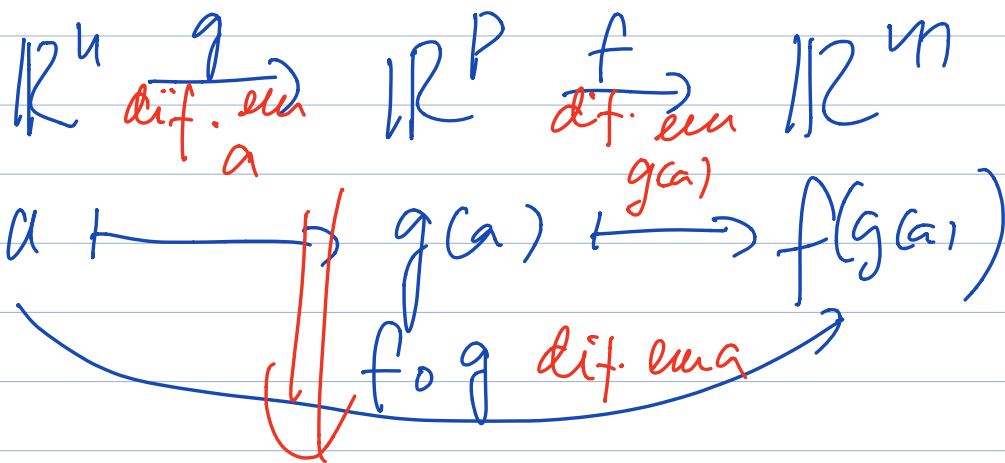 ℝⁿ g → ℝᵖ f → ℝᵐ
dif. em a dif. em g(a)
a ⟼ g(a) ⟼ f(g(a))
f∘g dif. em a